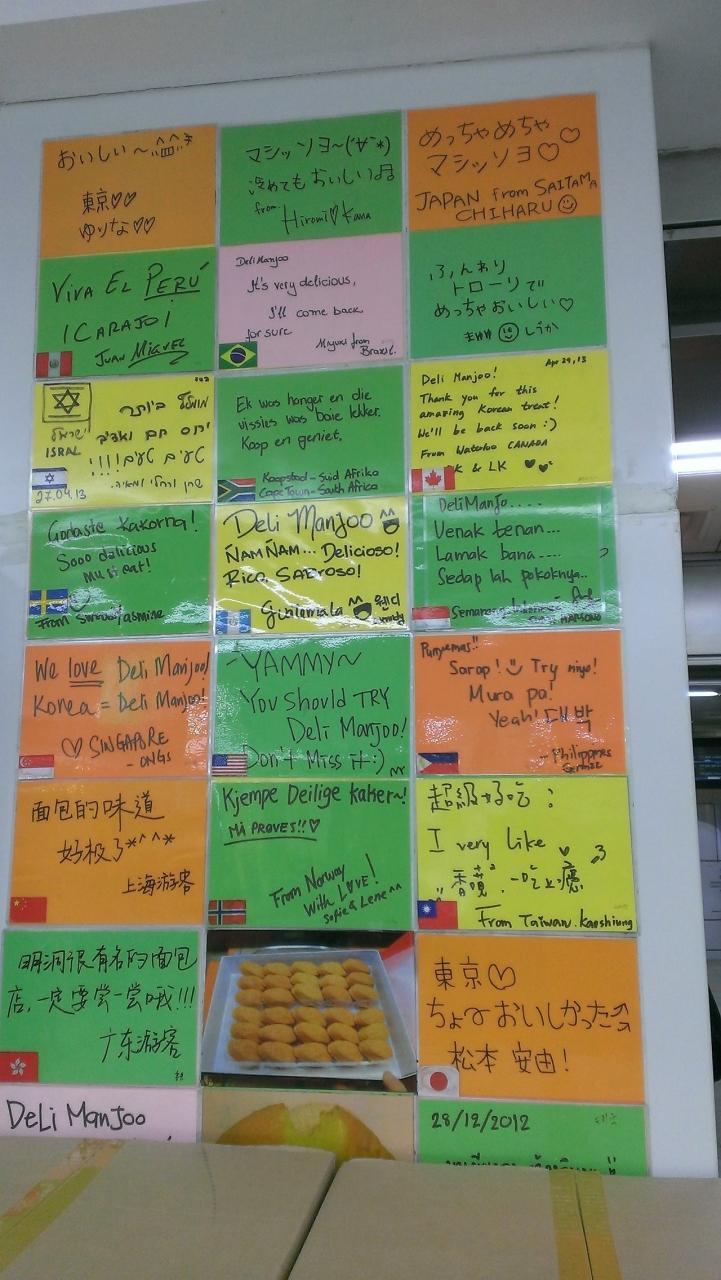 おいしい～
東京♡♡
ゆりな♡♡
マシッソヨ~
冷めてもおいしい
from Hiromi♡Kana
めっちゃめちゃ
マシッソヨ♡♡
JAPAN from SAITAMA
CHIHARU
VIVA EL PERÚ
¡CARAJO!
JUAN MIGUEL
Deli Manjoo
It's very delicious,
I'll come back
for sure
Miyuki from
Brazil.
ふんわり
トローリで
めっちゃおいしい♡
ISRAL
27.04.13
Ek was honger en die
vissies was baie lekker.
Koop en geniet.
Kaapstad - Suid Afrika
Cape Town - South Africa
Apr 29, 13
Deli Manjoo!
Thank you for this
amazing Korean treat!
We'll be back soon :)
From Waterloo CANADA
K & LK ♥♥
Godaste Kakorna!
Sooo delicious
must eat!
From Jasmine
Deli Manjoo
ÑAM ÑAM... Delicioso!
Rico, SABroso!
Guatemala 웬디
DeliManjo.....
Uenak tenan...
Lamak bana....
Sedap lah pokoknya..
Semarang Indonesia
We love Deli Manjoo!
Korea = Deli Manjoo!
♡ SINGAPORE
- ONGS
~YAMMY~
You Should TRY
Deli Manjoo!
Don't Miss it:)
Sarap! Try niyo!
Mura pa!
Yeah! 대박
- Philippines
面包的味道
好极了*^^*
上海游客
Kjempe Deilige kaker~!
MÅ PRØVES!!♡
From Norway
With LOVE!
Sofie & Lene^^
超級好吃:
I very like
一吃上癮
From Taiwan. Kaoshiung
明洞很有名的面包
店,一定要尝一尝哦!!!
广东游客
東京♡
ちょ〜おいしかった
松本 安由!
DeLi ManJoo
28/12/2012